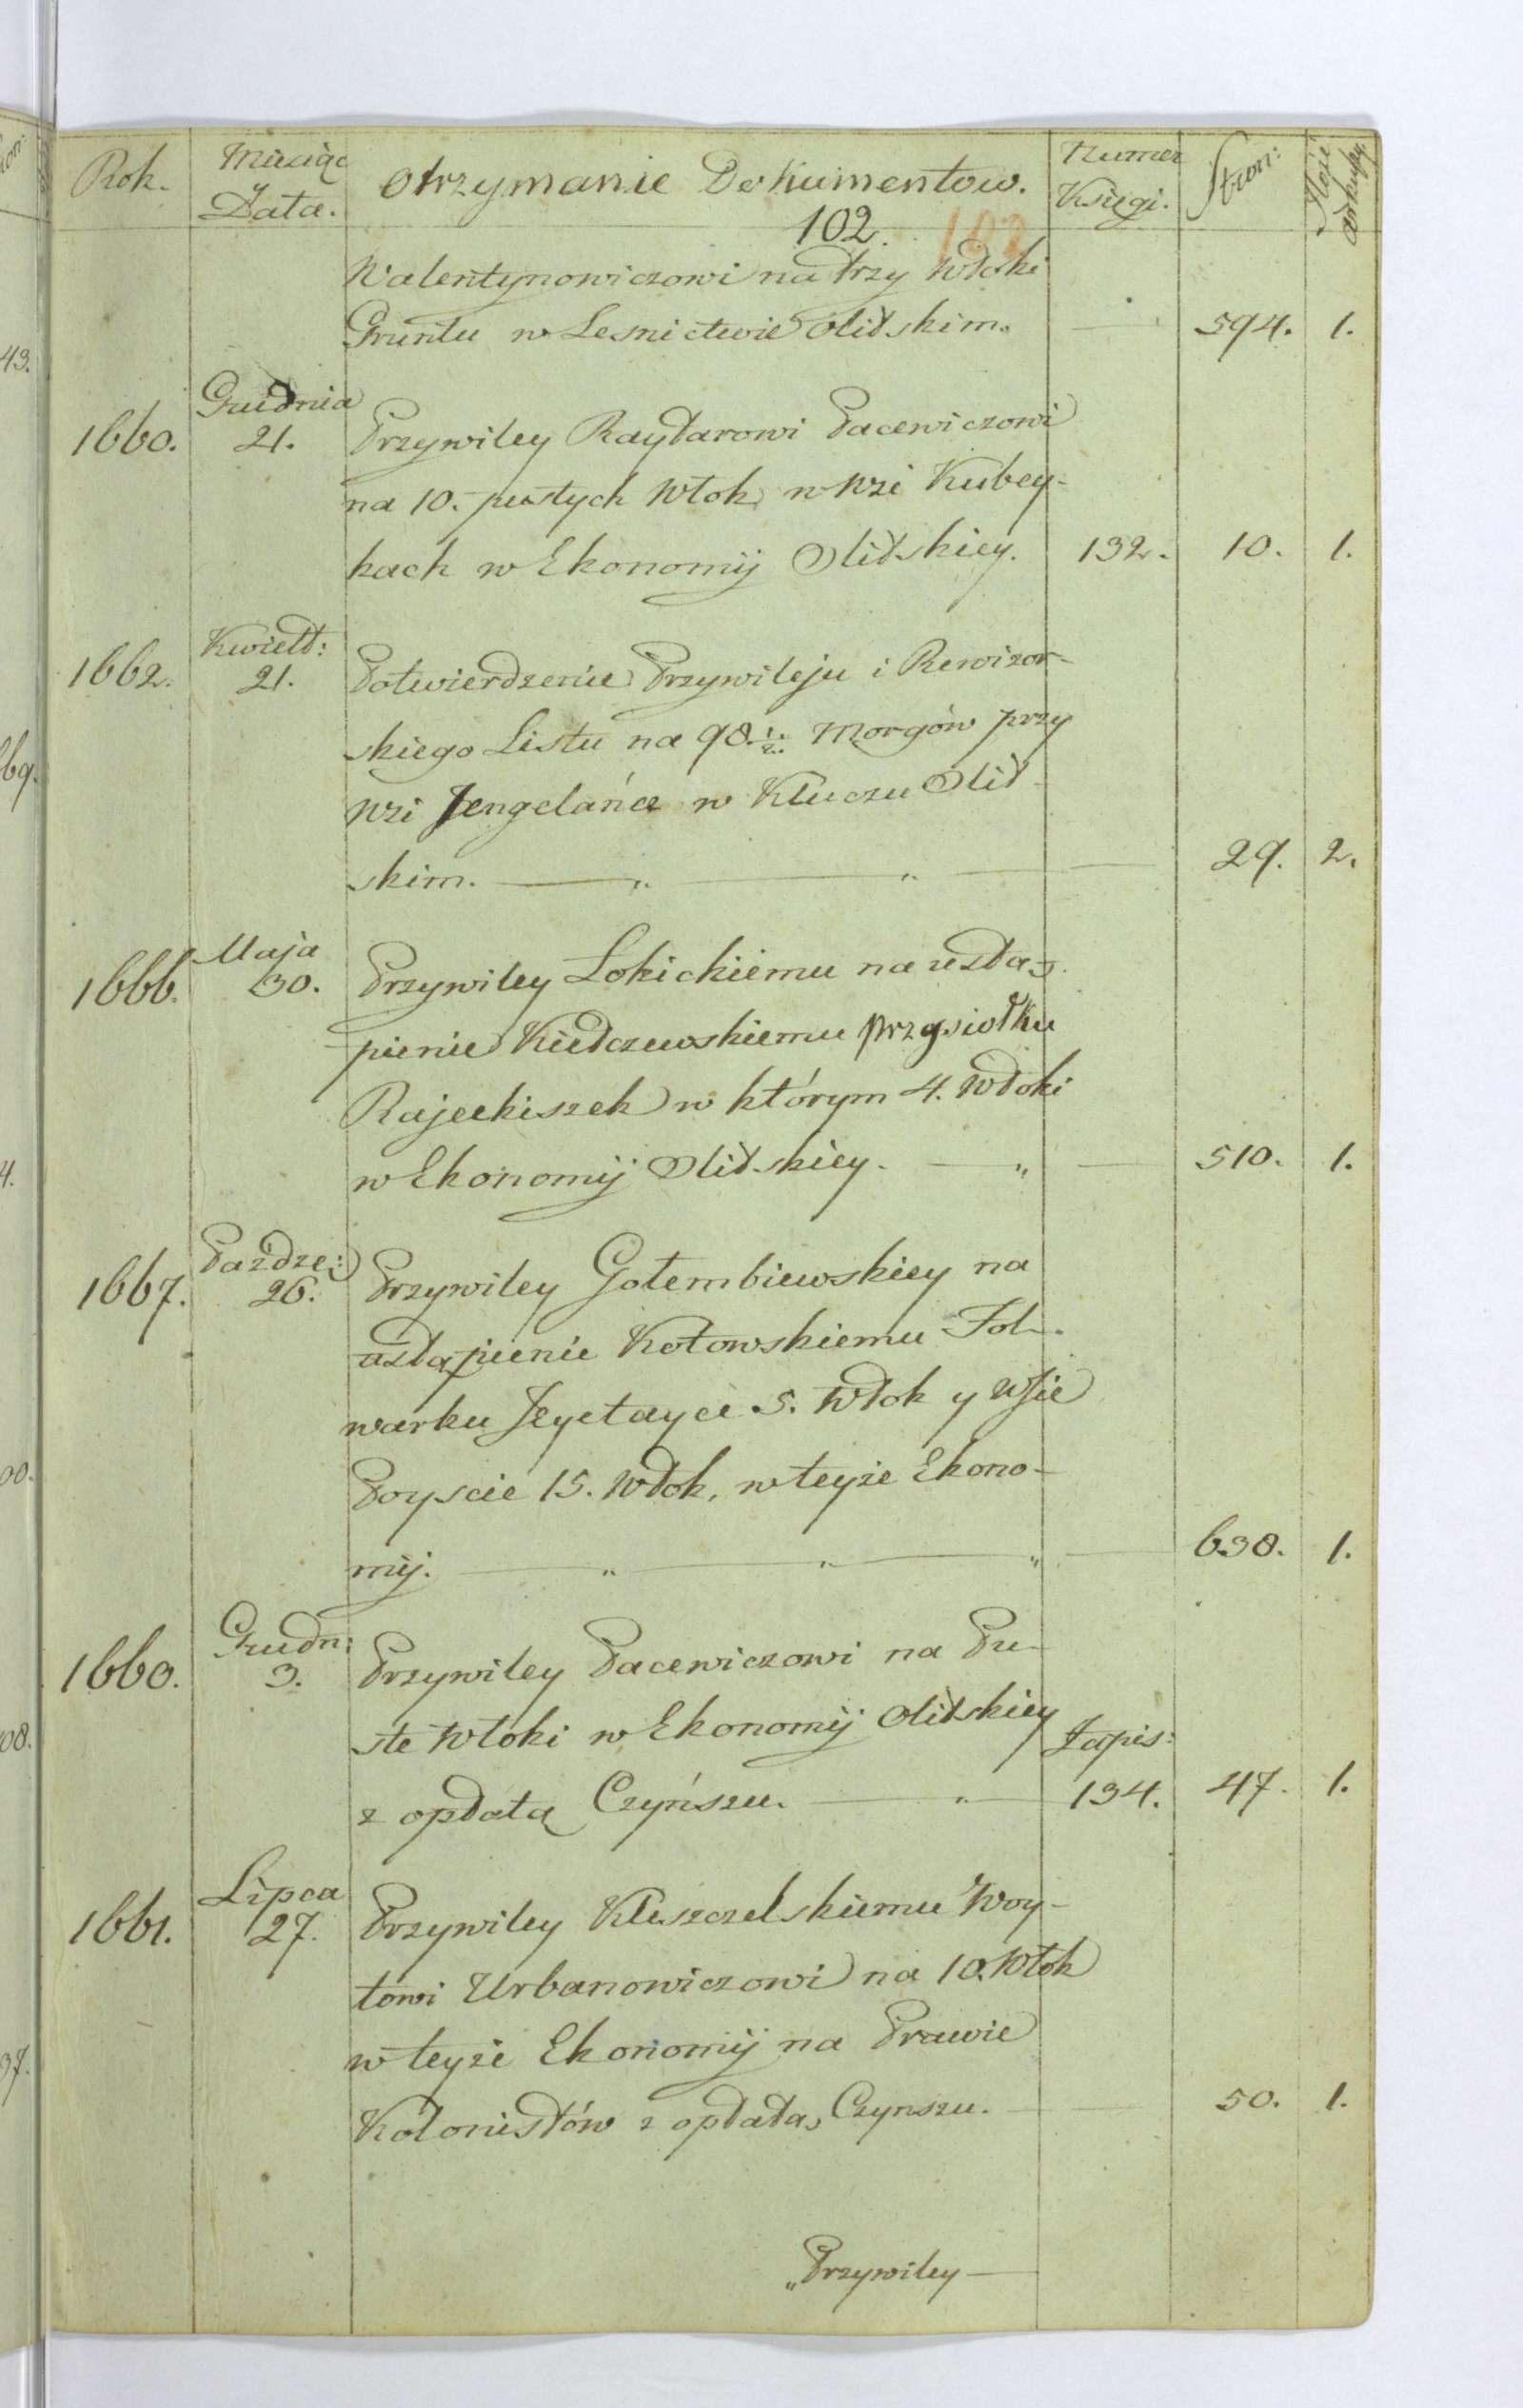 Rok. Miesiąc Data. Otrzymanie Dokumentow. Numer Księgi. Stron: Ilość arkuszy.
102. 102
Walentynowiczowi na trzy włoki
Gruntu w Lesnictwie Olitskim. 594. 1.
1660. Grudnia 21. Przywiley Raytarowi Pacewiczowi
na 10. pustych Włok w Wsi Kubey-
kach w Ekonomij Olitskiey. 132. 10. 1.
1662. Kwiet: 21. Potwierdzenie Przywileju i Rewizor-
skiego Listu na 98 1/2. Morgów przy
Wsi Jengelańce w Kluczu Olit-
skim. — „ — „ — 29. 2.
1666. Maja 30. Przywiley Lokickiemu na ustą-
pienie Kiedczewskiemu przysiołku
Rajeckiszek w którym 4. Włoki
w Ekonomij Olitskiey. — „ — 510. 1.
1667. Paźdze: 26. Przywiley Gołembiewskiey na
ustąpienie Kotowskiemu Fol-
warku 5. Włok y Wsie
Poyscie 15. Włok, w teyże Ekono-
mij. — „ — „ — „ — 638. 1.
1660. Grudn: 3. Przywiley Pacewiczowi na Pu-
ste Włoki w Ekonomij Olitskiey
z opłatą Czyńszu. — „ — Zapis: 134. 47. 1.
1661. Lipca 27. Przywiley Kleszczelskiemu Woy-
towi Urbanowiczowi na 10. Włok
w teyże Ekonomij na Prawie
Kolonistów z opłatą Czynszu. — 50. 1.
„Przywiley —